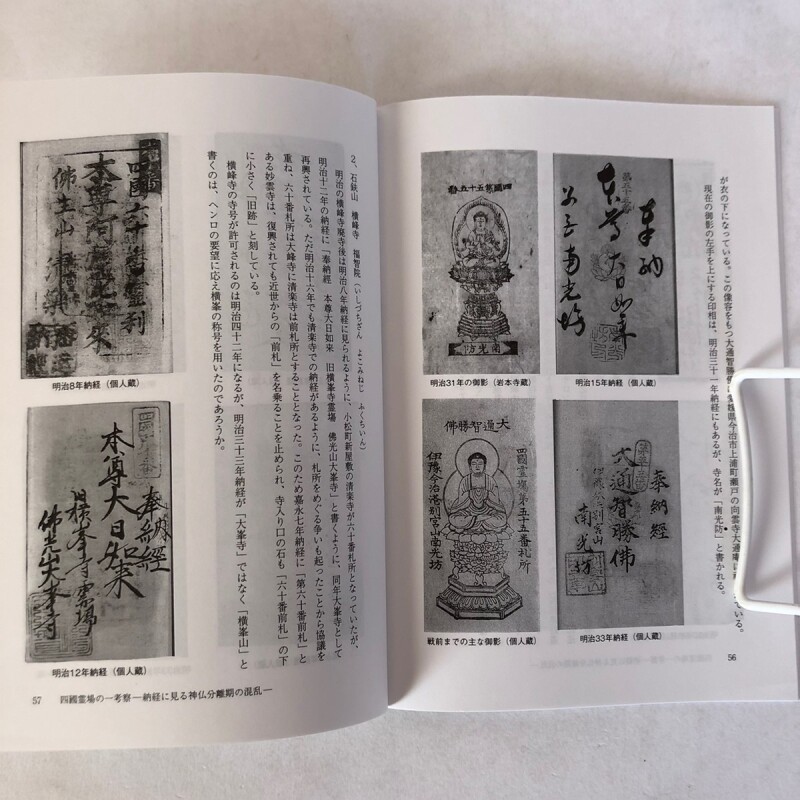 が衣の下になっている。この像容をもつ大通智勝佛は愛媛県今治市上浦町瀬戸の向雲寺大通庵に
ている。
現在の御影の左手を上にする印相は、明治三十一年納経にもあるが、寺名が「南光防」と書かれる。
奉納
第五十五番
本尊大日如来
南光坊
明治15年納経（個人蔵）
四國第五十五番
南光防
明治31年の御影（岩本寺蔵）
奉納經
大通智勝佛
伊豫今治別宮山
南光坊
明治33年納経（個人蔵）
四國霊場第五十五番札所
大通智勝佛
伊豫今治港別宮山南光坊
戦前までの主な御影（個人蔵）
56
2、石鈇山　横峰寺　福智院（いしづちざん　よこみねじ　ふくちいん）
明治の横峰寺廃寺後は明治八年納経に見られるように、小松町新屋敷の清楽寺が六十番札所となっていたが、
明治十二年の納経に「奉納経　本尊大日如来　旧横峯寺霊場　佛光山大峯寺」と書くように、同年大峯寺として
再興されている。ただ明治十六年でも清楽寺での納経があるように、札所をめぐる争いも起ったことから協議を
重ね、六十番札所は大峰寺に清楽寺は前札所とすることとなった。このため嘉永七年納経に「第六十番前札」と
ある妙雲寺は、復興されても近世からの「前札」を名乗ることを止められ、寺入り口の石も「六十番前札」の下
に小さく「旧跡」と刻している。
横峰寺の寺号が許可されるのは明治四十二年になるが、明治三十三年納経が「大峯寺」ではなく「横峯山」と
書くのは、ヘンロの要望に応え横峯の称号を用いたのであろうか。
四國六十番霊刹
佛生山清樂
明治8年納経（個人蔵）
奉納經
本尊大日如来
旧横峯寺霊場
佛光山大峯寺
明治12年納経（個人蔵）
57　四國霊場の一考察―納経に見る神仏分離期の混乱―